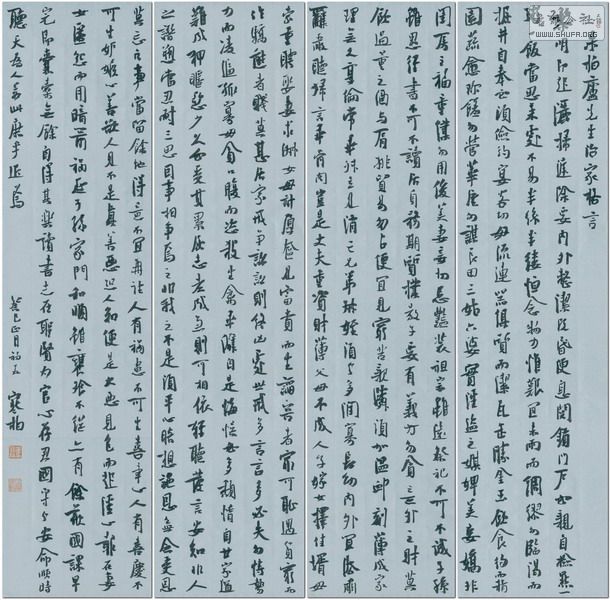 朱柏廬先生治家格言
黎明即起灑掃庭除要內外整潔既昏便息關鎖門戶必親自檢點一
粥一飯當思來處不易半絲半縷恒念物力惟艱宜未雨而綢繆勿臨渴而
掘井自奉必須儉約宴客切勿流連器具質而潔瓦缶勝金玉飲食約而
園蔬愈珍饈勿營華屋勿謀良田三姑六婆實淫盜之媒婢美妾嬌非
閨房之福童僕勿用俊美妻妾切忌豔裝祖宗雖遠祭祀不可不誠子孫
雖愚經書不可不讀居身務期質樸教子要有義方勿貪意外之財莫
飲過量之酒與肩挑貿易勿占便宜見窮苦親鄰須加溫卹刻薄成家
理無久享倫常乖舛立見消亡兄弟叔姪須分多潤寡長幼內外宜法肅
辭嚴聽婦言乖骨肉豈是丈夫重資財薄父母不成人子嫁女擇佳婿毋
索重聘娶妻求淑女毋計厚奩見富貴而生諂容者最可恥遇貧窮而
作驕態者賤莫甚居家戒爭訟訟則終凶處世戒多言言多必失勿恃勢
力而凌逼孤寡毋貪口腹而恣殺生禽乖僻自是悔悞必多頹惰自甘家道
難成狎暱惡少久必受其累屈志老成急則可相依輕聽發言安知非人
之譖愬當忍耐三思因事相爭焉知非我之不是須平心暗想施惠無念受恩
莫忘凡事當留餘地得意不宜再往人有禍患不可生喜幸心人有喜慶不
可生妒嫉心善欲人見不是真善惡恐人知便是大惡見色而起淫心報在妻
女匿怨而用暗箭禍延子孫家門和順雖饔飧不繼亦有餘歡國課早
完即囊橐無餘自得其樂讀書志在聖賢為官心存君國守分安命順時
聽天為人若此庶乎近焉 癸巳正月初五 寒柏
公社
WWW.SHUFA.ORG